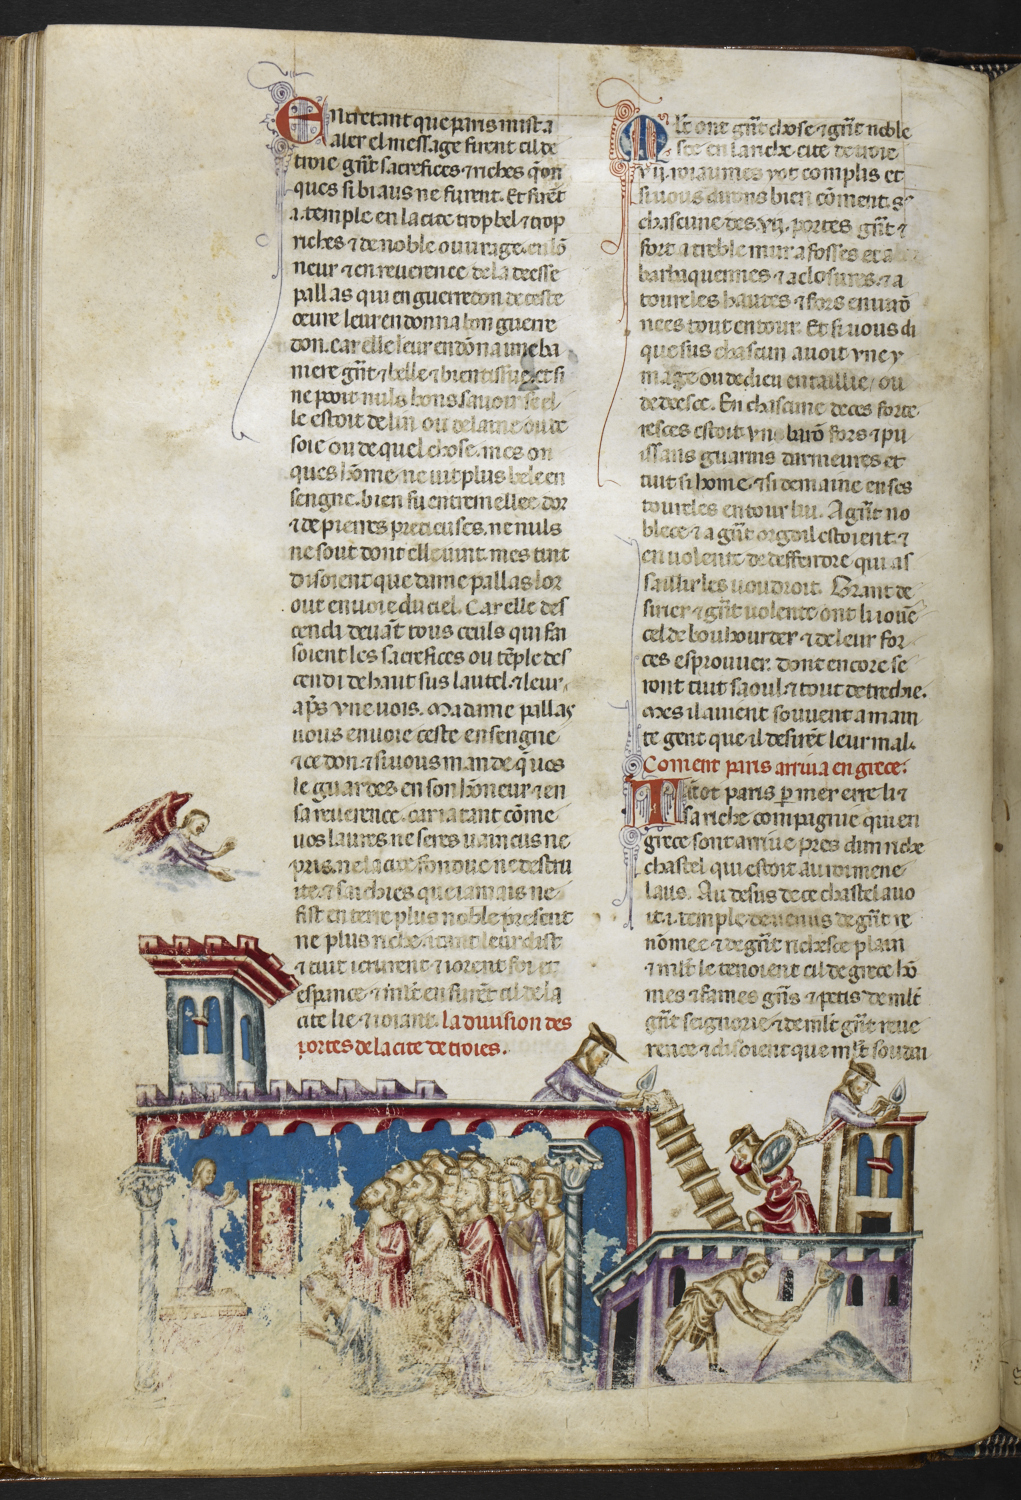 Entretant que paris mist a
aler el message firent cil de
troie gn̄t sacrefices ⁊ riches q̄ on
ques si biaus ne furent. Et firēt
.i. temple en la cite trop bel ⁊ trop
riches ⁊ de noble ouurage. en lō
neur ⁊ en reuerence de la deesse
pallas qui en guerredon de ceste
oeure leur en donna bon guerre
don. car elle leur en dōna une ba
niere gn̄t ⁊ belle ⁊ bien tissue. et si
ne poit nuls hons sauoir se el
le estoit de lin ou de laine ou de
soie ou de quel chose. mes on
ques hōme ne uit plus bele en
sengne. bien fu entremellee dor
⁊ de pierres precieuses. ne nuls
ne sout dont elle uint. mes tuit
disoient que dame pallas lor
out enuoie du ciel. Car elle des
cendi deuāt tous ceuls qui fai
soient les sacrefices ou tēple des
cendi de haut sus lautel. ⁊ leur
ap̄s vne uois. Ma dame pallas
uous enuoie ceste ensengne
⁊ ce don. ⁊ si uous mande q̄ uos
le guardes en son hōneur ⁊ en
sa reuerence. car ia tant cōme
uos laures ne seres uaincus ne
pris. ne la cite fondue ne destru
ite. ⁊ sachies que iamais ne
fist en terre plus noble present
ne plus riche. ⁊ tuit leur dist
⁊ tuit
esp̄ance ⁊ mlt̄ en furēt cil de la
cite lie ⁊ ioiant. la diuision des
portes de la cite de troies.
Mlt̄ ont gn̄t chose ⁊ gn̄t noble
sce en lanche cite de troie
vii. roiaumes
si uous dirons bien cōment.
chascune des .vii. portes gn̄t ⁊
fort a treble mur a fosses et a
barbaquennes ⁊ a closures. ⁊ a
toureles hautes ⁊ fors enuirō
nees tout entour. Et si uous di
que sus chascun auoit vne y
mage ou de dieu entaillie / ou
de deesce. En chascune de ces forte
resces estoit vn barō fors ⁊ pu
issans guarnis darmeures et
tuit si home. ⁊ si demaine en ses
toureles entour lui. A gn̄t no
blece ⁊ a gn̄t orgoil estoient ⁊
en uolente de deffendre qui as
saillir les uoudroit. Grant de
sirier ⁊ gn̄t uolente ont li iouē
cel de bouhourder ⁊ de leur for
ces esprouuer. dont encore se
ront tuit saoul ⁊ tout detrechie.
Mes il auient souuent a main
te gent que il desirēt leur mal.
Coment paris arriua en grece.
Tātot paris p̄ mer erre li ⁊
sa riche compaignie qui en
grece sont arriue pres dun riche
chastel qui estoit au roi mene
laus. Au desus de ce chastel auo
it .i. temple de uenus de gn̄t re
nōmee ⁊ de gn̄t richesce plain
⁊ mlt̄ le tenoient cil de grece hō
mes ⁊ fames gn̄s ⁊ petis de mlt̄
gn̄t seignorie ⁊ de mlt̄ gn̄t reue
rence ⁊ disoient que mlt̄ souuen